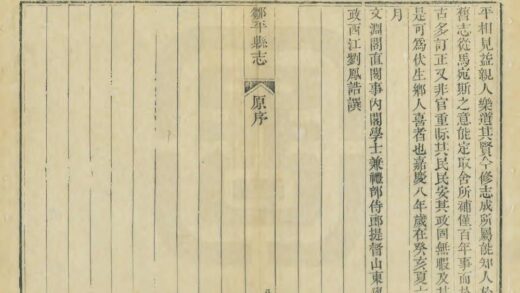 平相見益親人樂道其賢今修志成所屬能知人於
舊志從馬宛斯之意能定取舍所補僅百年事而於
古多訂正又非官重賑其民民安其政固無暇及其
是可為伏生鄉人喜者也嘉慶八年歲在癸亥夏六
月
文淵閣直閣事內閣學士兼禮部侍郎提督山東學
政西江劉鳳誥譔
鄒平縣志
原序